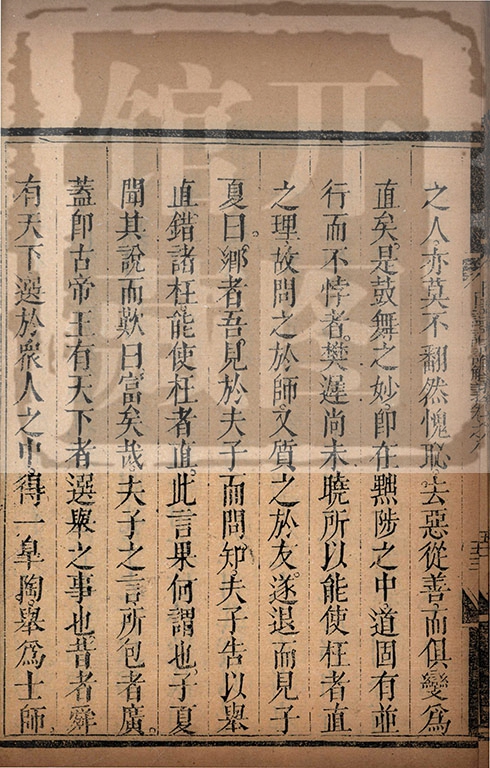 之人亦莫不翻然愧恥去惡從善而俱變爲
直矣是鼓舞之妙即在黜陟之中道固有並
行而不悖者樊遲尚未曉所以能使枉者直
之理故問之於師又質之於友遂退而見子
夏曰鄉者吾見於夫子而問知夫子告以舉
直錯諸枉能使枉者直此言果何謂也子夏
聞其說而歎曰富矣哉夫子之言所包者廣
蓋卽古帝王有天下者選舉之事也昔者舜
有天下選於衆人之中得一皐陶舉爲士師